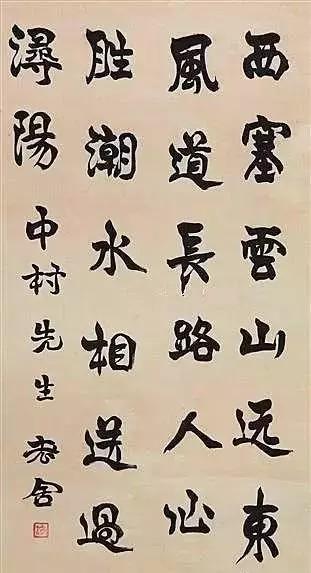 西塞雲山远東
風道長路人心
胜潮水相送過
潯陽 中村先生 老舍